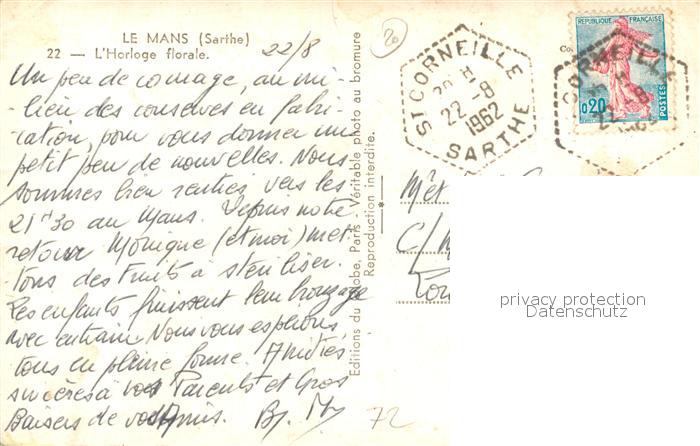 LE MANS (Sarthe)
22 — L'Horloge florale.
22/8
20
Un peu de courage, au mi-
lieu des conserves en fabri-
cation, pour vous donner un
petit peu de nouvelles. Nous
sommes bien rentrés vers les
21h30 au Mans. Depuis notre
retour Monique (et moi) met-
tons des fruits à stériliser.
Les enfants finissent leur bronzage
avec entrain. Nous vous espérons
tous en pleine forme. Amitiés
sincères à vos Parents et Gros
Baisers de vos Amis.
72
Editions du Globe, Paris - Véritable photo au bromure
Reproduction interdite.
ST CORNEILLE
22-8
1962
SARTHE
REPUBLIQUE FRANÇAISE
0,20
POSTES
CORNEILLE
C/
privacy protection
Datenschutz